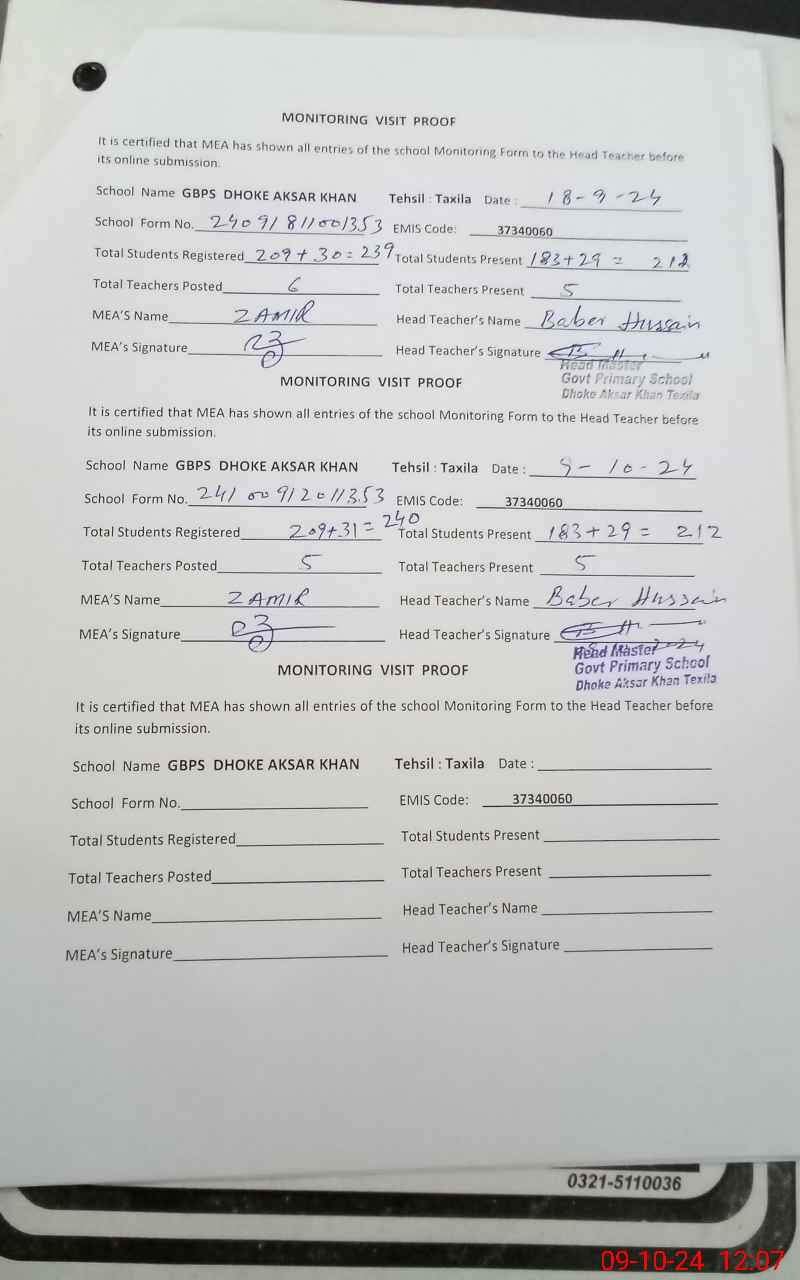 MONITORING VISIT PROOF
It is certified that MEA has shown all entries of the school Monitoring Form to the Head Teacher before
its online submission.
School Name GBPS DHOKE AKSAR KHAN Tehsil : Taxila Date : 18-9-24
School Form No. 24091811001353 EMIS Code: 37340060
Total Students Registered 209+30=239 Total Students Present 183+29= 212
Total Teachers Posted 6 Total Teachers Present 5
MEA'S Name ZAMIR Head Teacher's Name Baber Hussain
MEA's Signature Head Teacher's Signature
Head Master
Govt Primary School
Dhoke Aksar Khan Texila
MONITORING VISIT PROOF
It is certified that MEA has shown all entries of the school Monitoring Form to the Head Teacher before
its online submission.
School Name GBPS DHOKE AKSAR KHAN Tehsil : Taxila Date : 9-10-24
School Form No. 24100912011353 EMIS Code: 37340060
Total Students Registered 209+31=240 Total Students Present 183+29= 212
Total Teachers Posted 5 Total Teachers Present 5
MEA'S Name ZAMIR Head Teacher's Name Baber Hussain
MEA's Signature Head Teacher's Signature
Head Master
Govt Primary School
Dhoke Aksar Khan Texila
MONITORING VISIT PROOF
It is certified that MEA has shown all entries of the school Monitoring Form to the Head Teacher before
its online submission.
School Name GBPS DHOKE AKSAR KHAN Tehsil : Taxila Date :
School Form No. EMIS Code: 37340060
Total Students Registered Total Students Present
Total Teachers Posted Total Teachers Present
MEA'S Name Head Teacher's Name
MEA's Signature Head Teacher's Signature
0321-5110036
09-10-24 12:07